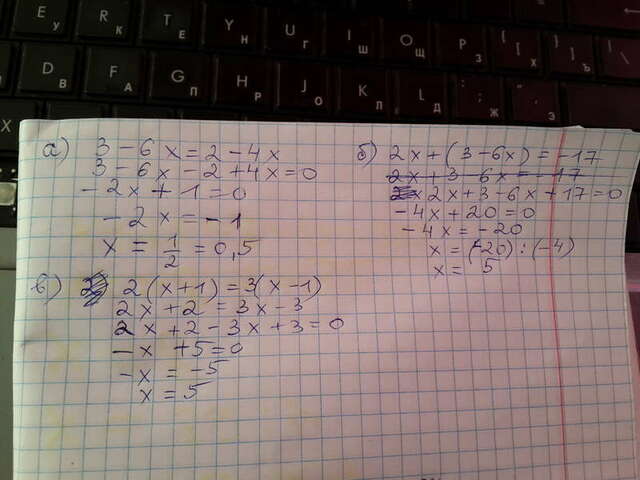 E У
R К
T Е
Y Н
U Г
I Ш
O Щ
P З
{ [ Х
} ] Ъ
D В
F А
G П
H Р
J О
K Л
L Д
: ; Ж
" ' Э
X
а) 3 - 6x = 2 - 4x
3 - 6x - 2 + 4x = 0
- 2x + 1 = 0
- 2x = - 1
x = 1/2 = 0,5
б) 2x + (3 - 6x) = - 17
2x + 3 - 6x = - 17
2x + 3 - 6x + 17 = 0
- 4x + 20 = 0
- 4x = - 20
x = (-20) : (-4)
x = 5
в) 2(x+1) = 3(x-1)
2x + 2 = 3x - 3
2x + 2 - 3x + 3 = 0
- x + 5 = 0
- x = - 5
x = 5